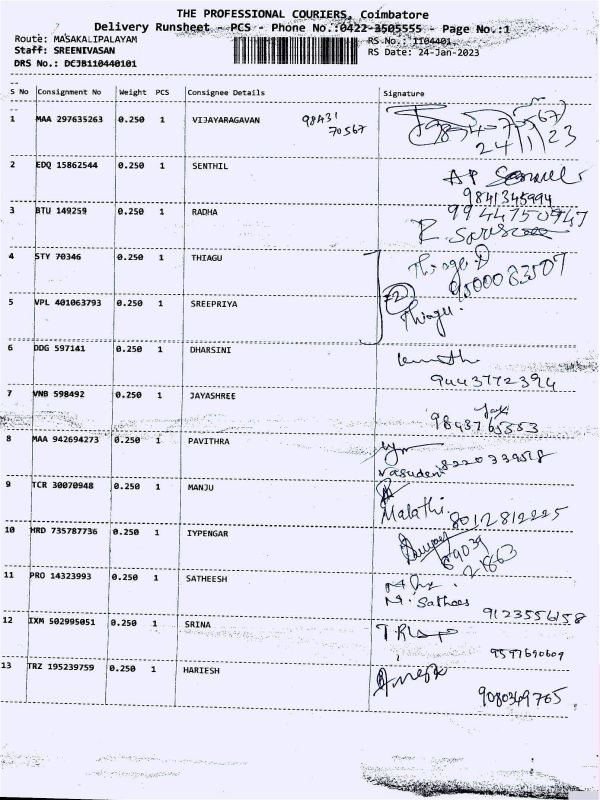 THE PROFESSIONAL COURIERS, Coimbatore
Delivery Runsheet - PCS - Phone No.:0422-3505555 - Page No.:1
Route: MASAKALIPALAYAM
RS No.: 1104401
Staff: SREENIVASAN
RS Date: 24-Jan-2023
DRS No.: DCJB110440101
S No Consignment No Weight PCS Consignee Details Signature
1 MAA 297635263 0.250 1 VIJAYARAGAVAN 98431
70567
24/1/23
2 EDQ 15862544 0.250 1 SENTHIL AP
9841345994
3 BTU 149259 0.250 1 RADHA 9944750947
R.
4 STY 70346 0.250 1 THIAGU
9500083507
5 VPL 401063793 0.250 1 SREEPRIYA 2
Thiagu.
6 DDG 597141 0.250 1 DHARSINI
9443772394
7 VNB 598492 0.250 1 JAYASHREE
9843765553
8 MAA 942694273 0.250 1 PAVITHRA
Vasudevi
9 TCR 30070948 0.250 1 MANJU
Malathi 8012812225
10 HRD 735787736 0.250 1 IYPENGAR
89039
21863
11 PRO 14323993 0.250 1 SATHEESH
M. Sathees
9123556158
12 IXM 502995051 0.250 1 SRINA
9597690609
13 TRZ 195239759 0.250 1 HARIESH
9080349765